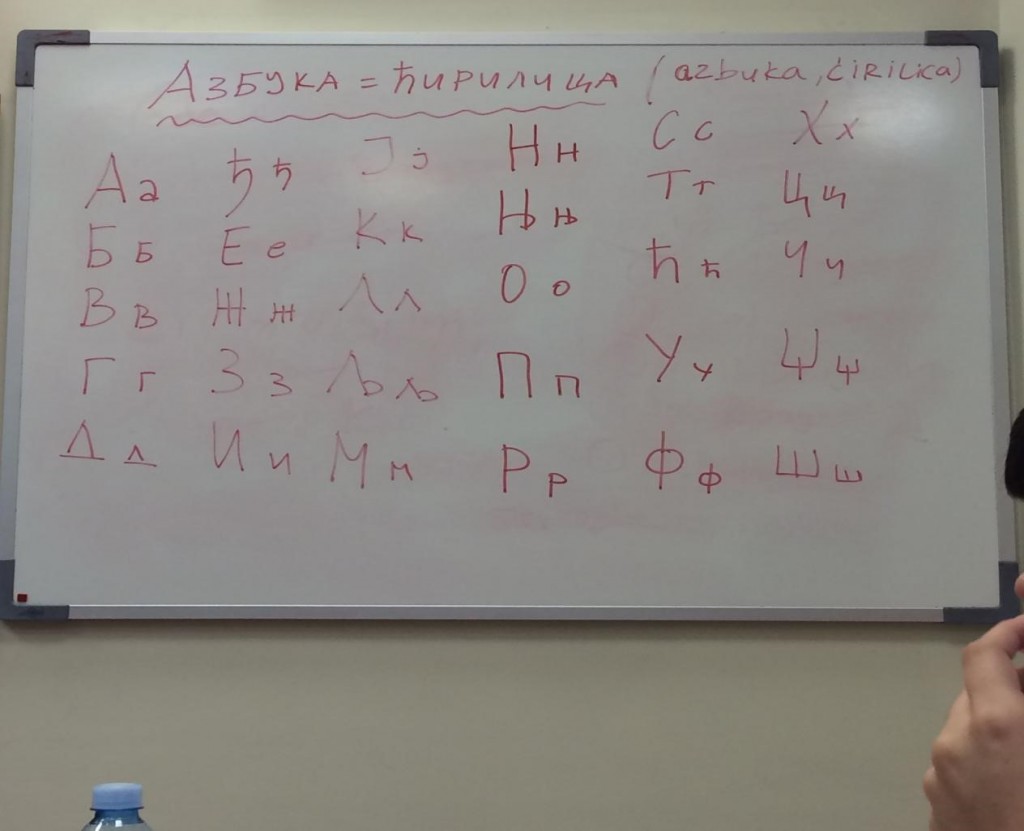 АЗБУКА = ЋИРИЛИЦА (azbuka, ćirilica)
А а
Б б
В в
Г г
Д д
Ђ ђ
Е е
Ж ж
З з
И и
Ј ј
К к
Л л
Љ љ
М м
Н н
Њ њ
О о
П п
Р р
С с
Т т
Ћ ћ
У у
Ф ф
Х х
Ц ц
Ч ч
Џ џ
Ш ш